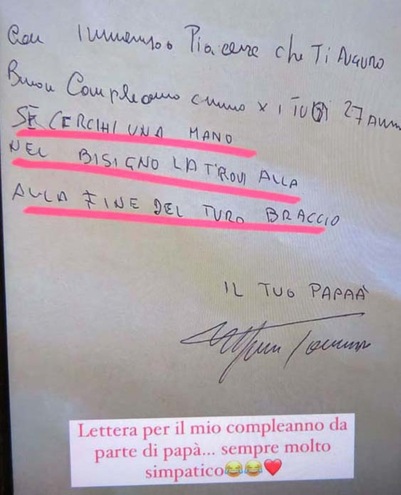 Con Immenso Piacere che Ti Auguro
Buon Compleanno x i TUOI 27 Anni
SE CERCHI UNA MANO
NEL BISIGNO LA TROVI ALLA
ALLA FINE DEL TUO BRACCIO
IL TUO PAPAÀ
Lettera per il mio compleanno da
parte di papà... sempre molto
simpatico😂😂❤️